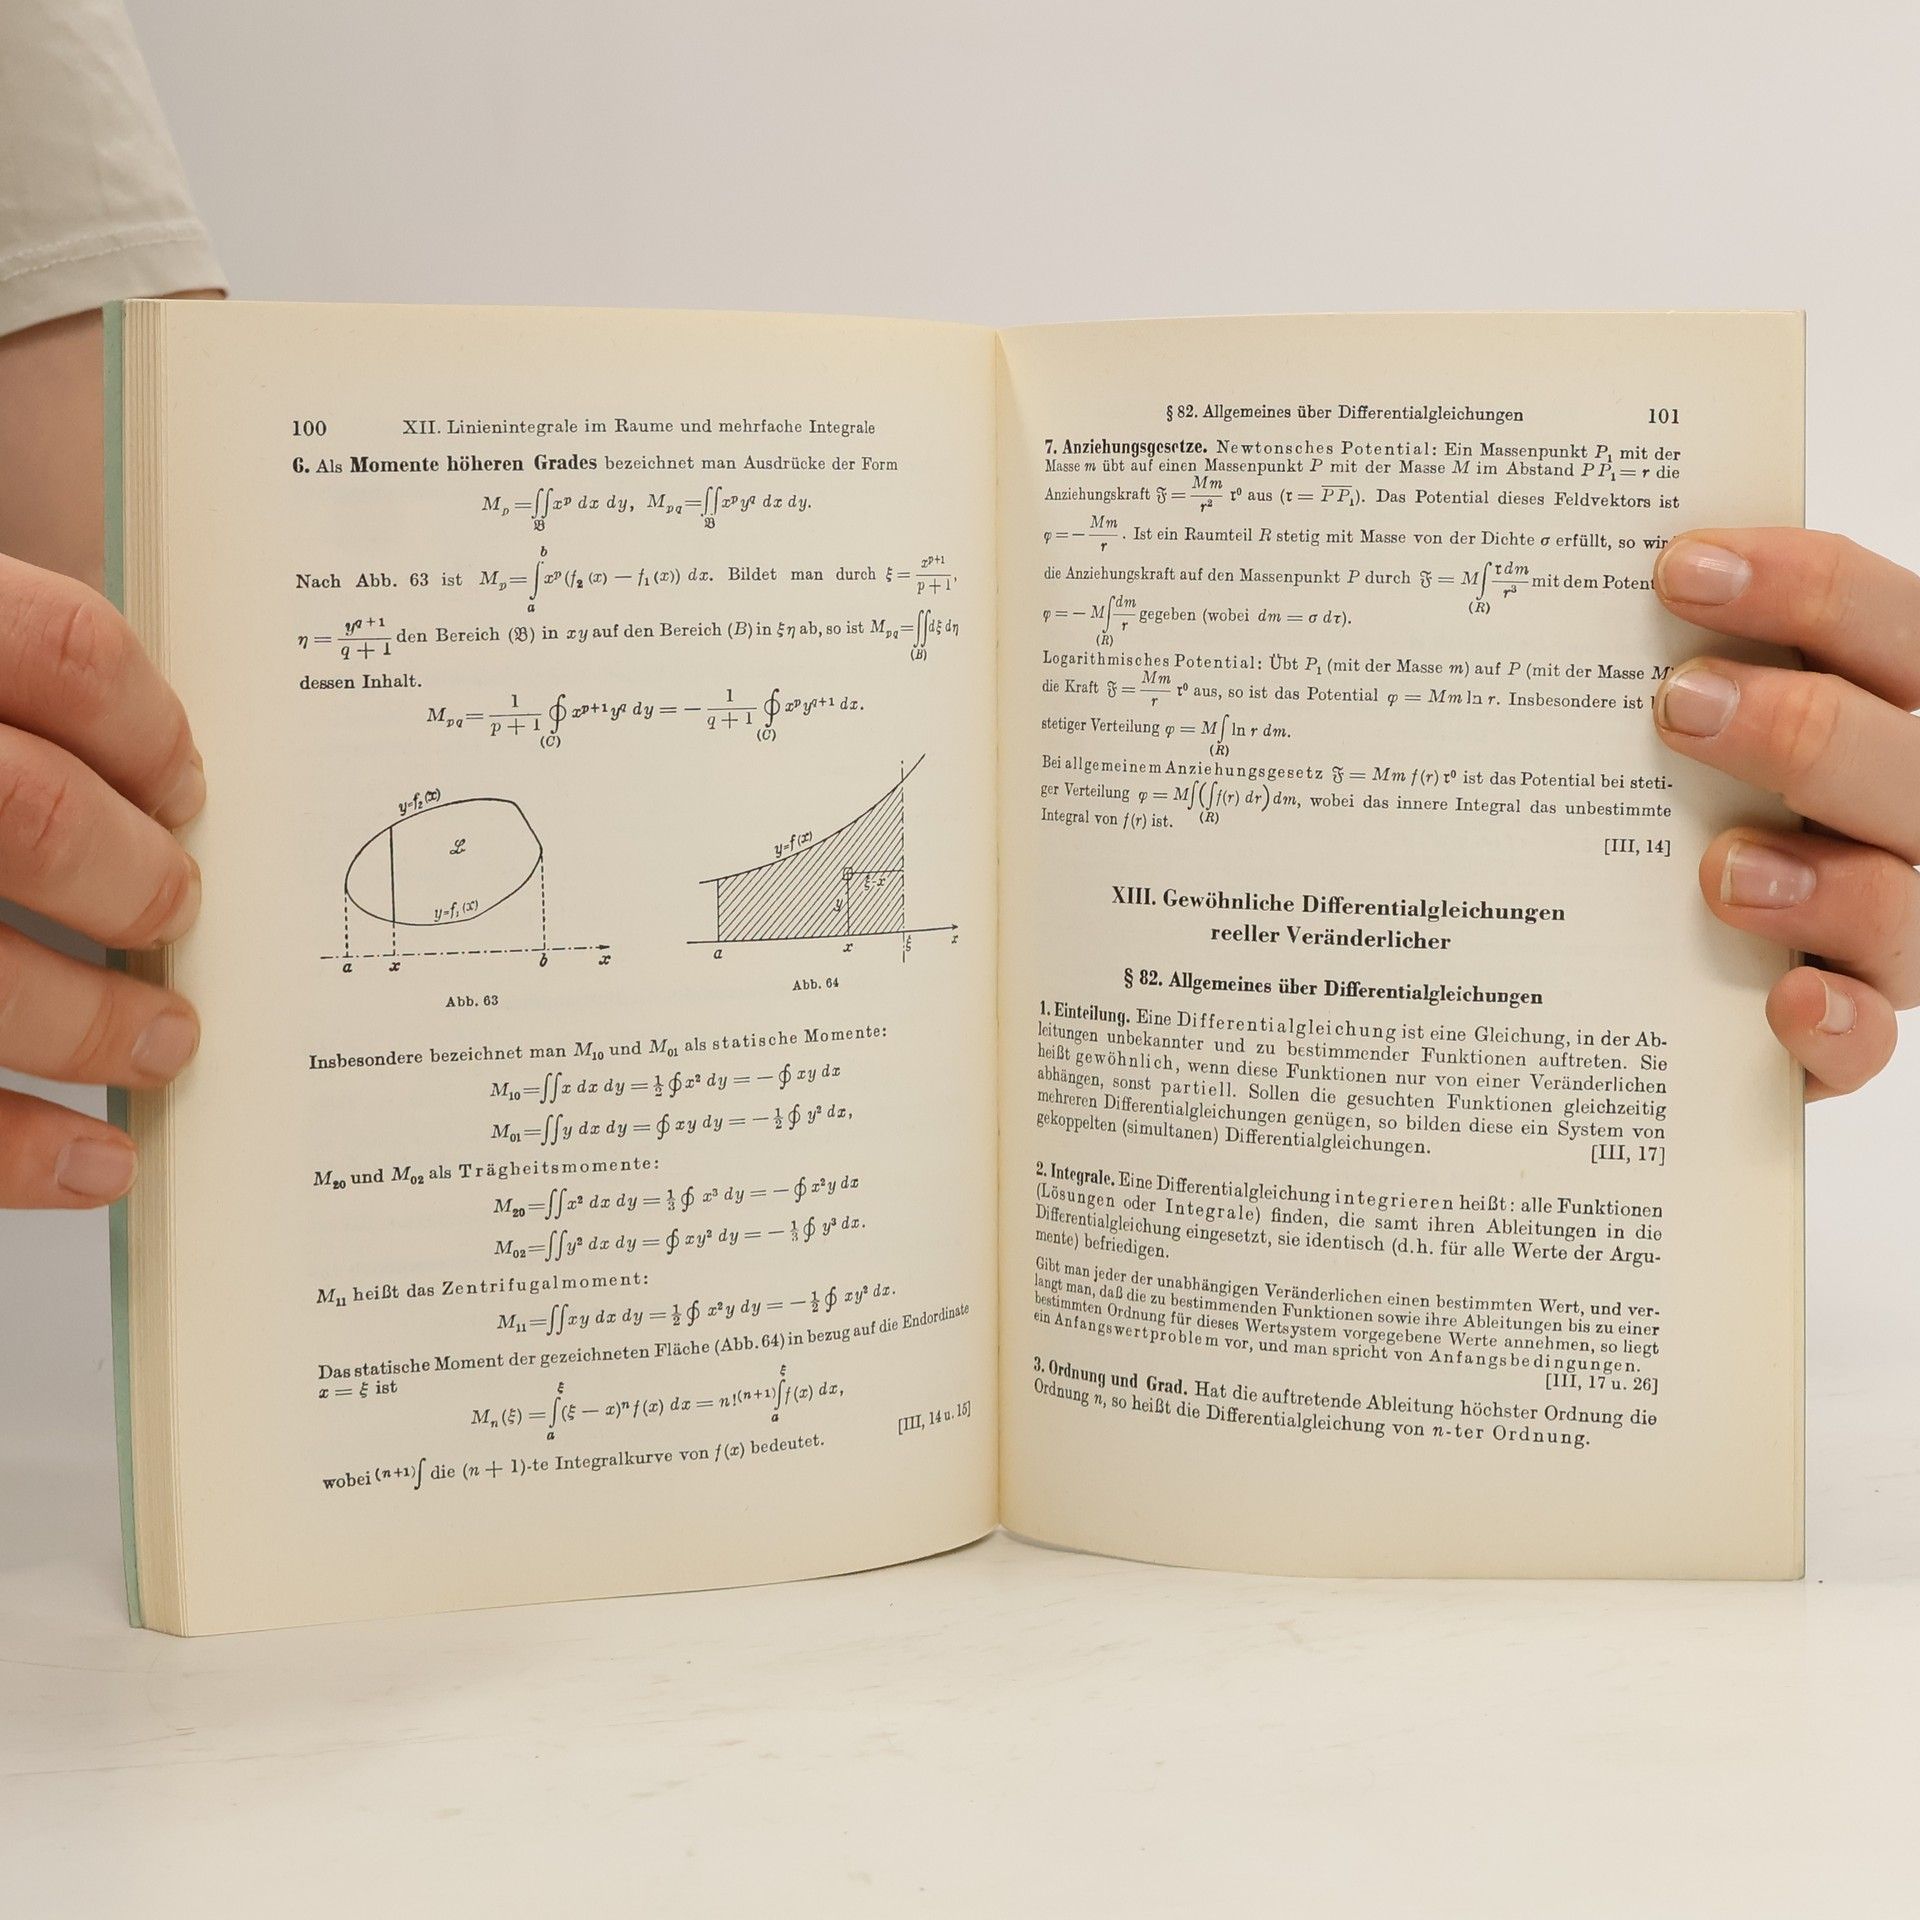 100 XII. Linienintegrale im Raume und mehrfache Integrale
6. Als Momente höheren Grades bezeichnet man Ausdrücke der Form
M_p = ∬_𝔅 x^p dx dy, M_pq = ∬_𝔅 x^p y^q dx dy.
Nach Abb. 63 ist M_p = ∫_a^b x^p (f₂ (x) — f₁ (x)) dx. Bildet man durch ξ = x^(p+1)/(p + 1),
η = y^(q+1)/(q + 1) den Bereich (𝔅) in xy auf den Bereich (B) in ξη ab, so ist M_pq = ∬_(B) dξ dη
dessen Inhalt.
M_pq = 1/(p + 1) ∮_(C) x^(p+1) y^q dy = — 1/(q + 1) ∮_(C) x^p y^(q+1) dx.
y=f₂(x)
ℒ
y=f₁(x)
a x b x
Abb. 63
y=f(x)
ξ-x
y
a x ξ x
Abb. 64
Insbesondere bezeichnet man M₁₀ und M₀₁ als statische Momente:
M₁₀ = ∬ x dx dy = ½ ∮ x² dy = — ∮ xy dx
M₀₁ = ∬ y dx dy = ∮ xy dy = — ½ ∮ y² dx,
M₂₀ und M₀₂ als Trägheitsmomente:
M₂₀ = ∬ x² dx dy = ⅓ ∮ x³ dy = — ∮ x²y dx
M₀₂ = ∬ y² dx dy = ∮ xy² dy = — ⅓ ∮ y³ dx.
M₁₁ heißt das Zentrifugalmoment:
M₁₁ = ∬ xy dx dy = ½ ∮ x²y dy = — ½ ∮ xy² dx.
Das statische Moment der gezeichneten Fläche (Abb. 64) in bezug auf die Endordinate
x = ξ ist
M_n (ξ) = ∫_a^ξ (ξ — x)^n f (x) dx = n! ^(n+1)∫_a^ξ f (x) dx,
wobei ^(n+1)∫ die (n + 1)-te Integralkurve von f (x) bedeutet. [III, 14 u. 15]
§ 82. Allgemeines über Differentialgleichungen 101
7. Anziehungsgesetze. Newtonsches Potential: Ein Massenpunkt P₁ mit der
Masse m übt auf einen Massenpunkt P mit der Masse M im Abstand P P₁ = r die
Anziehungskraft 𝔉 = Mm/r² 𝔯⁰ aus (𝔯 = P P₁). Das Potential dieses Feldvektors ist
φ = — Mm/r . Ist ein Raumteil R stetig mit Masse von der Dichte σ erfüllt, so wir
die Anziehungskraft auf den Massenpunkt P durch 𝔉 = M ∫_(R) 𝔯 dm/r³ mit dem Potent
φ = — M ∫_(R) dm/r gegeben (wobei dm = σ dτ).
Logarithmisches Potential: Übt P₁ (mit der Masse m) auf P (mit der Masse M
die Kraft 𝔉 = Mm/r 𝔯⁰ aus, so ist das Potential φ = Mm ln r. Insbesondere ist
stetiger Verteilung φ = M ∫_(R) ln r dm.
Bei allgemeinem Anziehungsgesetz 𝔉 = Mm f (r) 𝔯⁰ ist das Potential bei steti-
ger Verteilung φ = M ∫_(R) (∫ f(r) dr) dm, wobei das innere Integral das unbestimmte
Integral von f (r) ist.
[III, 14]
XIII. Gewöhnliche Differentialgleichungen
reeller Veränderlicher
§ 82. Allgemeines über Differentialgleichungen
1. Einteilung. Eine Differentialgleichung ist eine Gleichung, in der Ab-
leitungen unbekannter und zu bestimmender Funktionen auftreten. Sie
heißt gewöhnlich, wenn diese Funktionen nur von einer Veränderlichen
abhängen, sonst partiell. Sollen die gesuchten Funktionen gleichzeitig
mehreren Differentialgleichungen genügen, so bilden diese ein System von
gekoppelten (simultanen) Differentialgleichungen. [III, 17]
2. Integrale. Eine Differentialgleichung integrieren heißt: alle Funktionen
(Lösungen oder Integrale) finden, die samt ihren Ableitungen in die
Differentialgleichung eingesetzt, sie identisch (d.h. für alle Werte der Argu-
mente) befriedigen.
Gibt man jeder der unabhängigen Veränderlichen einen bestimmten Wert, und ver-
langt man, daß die zu bestimmenden Funktionen sowie ihre Ableitungen bis zu einer
bestimmten Ordnung für dieses Wertsystem vorgegebene Werte annehmen, so liegt
ein Anfangswertproblem vor, und man spricht von Anfangsbedingungen.
[III, 17 u. 26]
3. Ordnung und Grad. Hat die auftretende Ableitung höchster Ordnung die
Ordnung n, so heißt die Differentialgleichung von n-ter Ordnung.